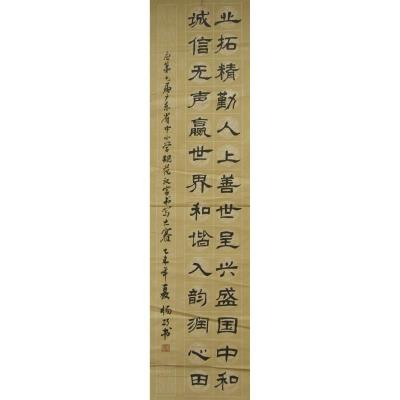 业拓精勤人上善世呈兴盛国中和
诚信无声赢世界和谐入韵润心田
第届广东省中小学规范汉字书写大赛乙未年夏杨书